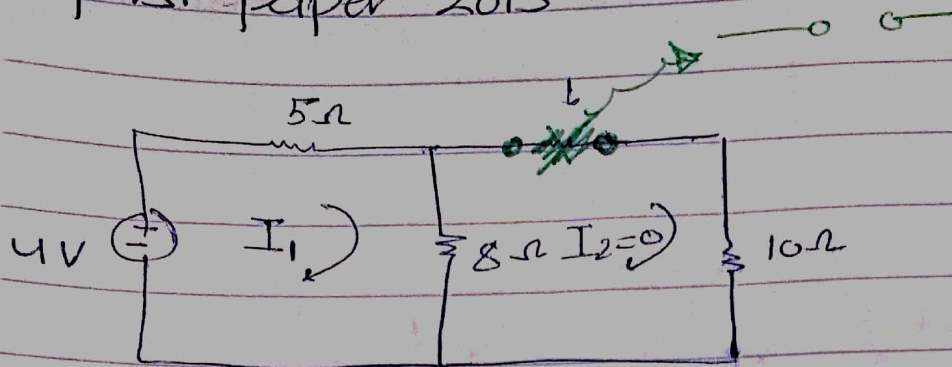 paper 2013
5Ω
4V
I₁
8Ω
I₂=0
10Ω